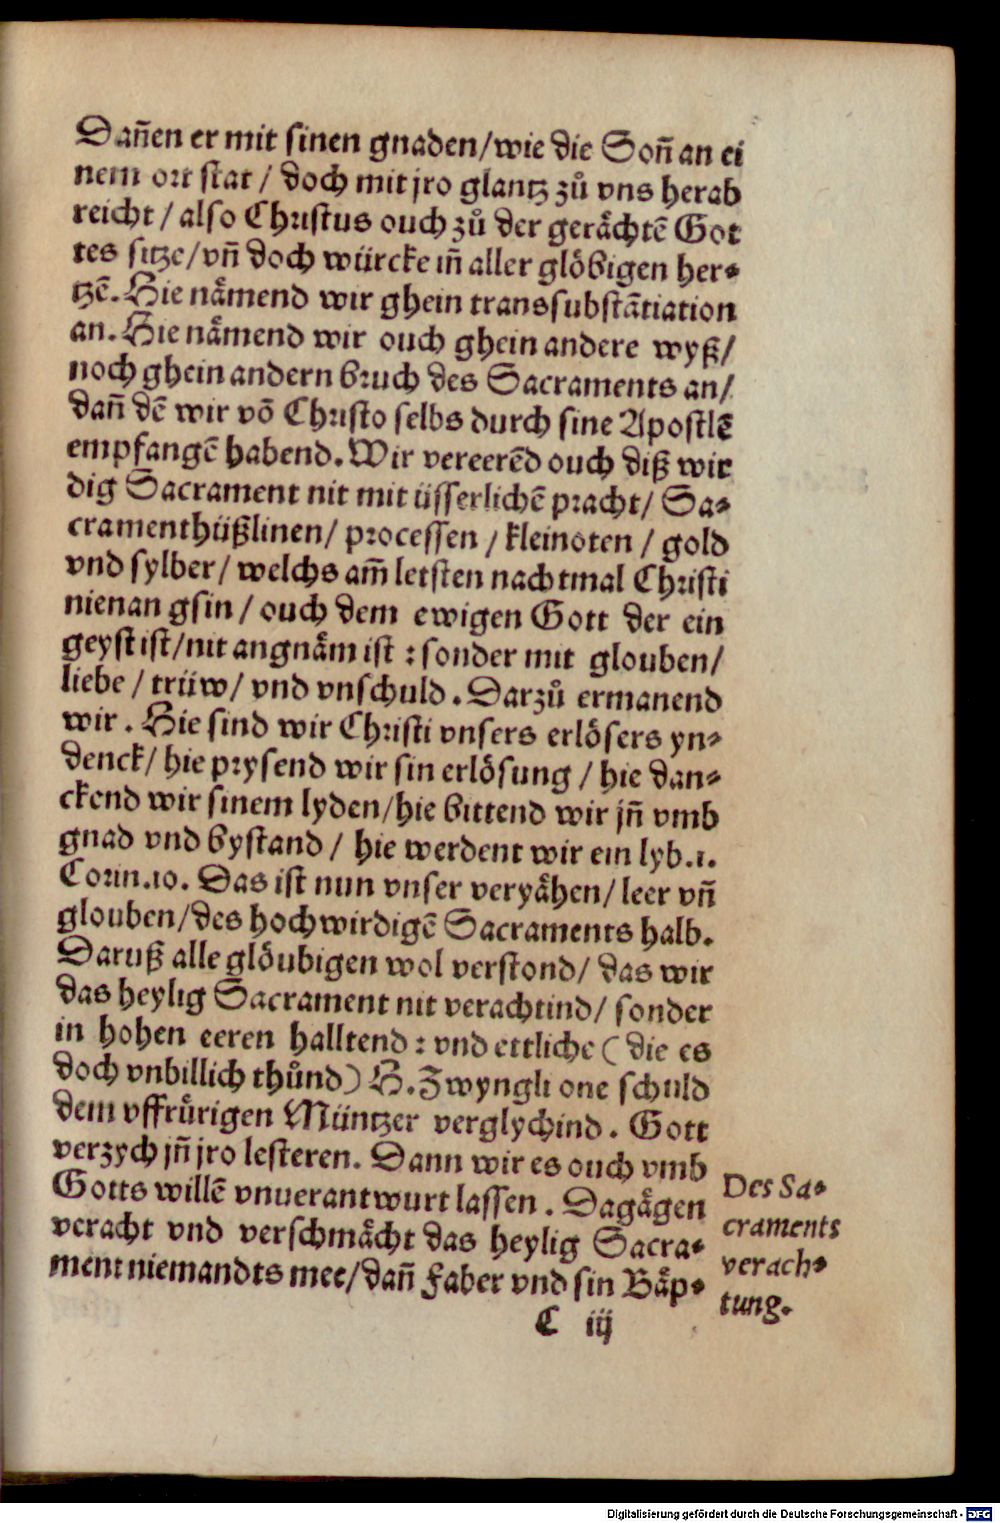 Dañen er mit sinen gnaden/wie die Soñ an ei
nem ort stat / doch mit jro glantz zů vns herab
reicht / also Christus ouch zů der gerächtẽ Got
tes sitze/vñ doch würcke iñ aller glöbigen her⸗
tzẽ. Hie nämend wir ghein transsubstãtiation
an. Hie nämend wir ouch ghein andere wyß/
noch ghein andern bruch des Sacraments an/
dañ dẽ wir võ Christo selbs durch sine Apostlẽ
empfangẽ habend. Wir vereerẽd ouch diß wir
dig Sacrament nit mit üsserlichẽ pracht/ Sa⸗
cramenthüßlinen/ processen / kleinoten / gold
vnd sylber/ welchs am̃ letsten nachtmal Christi
nienan gsin / ouch dem ewigen Gott der ein
geyst ist/nit angnäm ist : sonder mit glouben/
liebe / trüw/ vnd vnschuld . Darzů ermanend
wir . Hie sind wir Christi vnsers erlösers yn⸗
denck/ hie prysend wir sin erlösung / hie dan⸗
ckend wir sinem lyden/hie bittend wir jñ vmb
gnad vnd bystand / hie werdent wir ein lyb.1.
Corin.10. Das ist nun vnser veryähen/ leer vñ
glouben/des hochwirdigẽ Sacraments halb.
Daruß alle glöubigen wol verstond/ das wir
das heylig Sacrament nit verachtind/ sonder
in hohen eeren halltend : vnd ettliche ( die es
doch vnbillich thůnd) H. Zwyngli one schuld
dem vffrůrigen Müntzer verglychind . Gott
verzych jñ jro lesteren. Dann wir es ouch vmb
Gotts willẽ vnuerantwurt lassen . Dagägen
veracht vnd verschmächt das heylig Sacra⸗
ment niemandts mee/dañ Faber vnd sin Bäp⸗
Des Sa⸗
craments
verach⸗
tung.
C iij
Digitalisierung gefördert durch die Deutsche Forschungsgemeinschaft - DFG